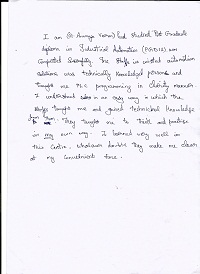 I am (S. Ananya Kumar) had studied Post Graduate
diploma in Industrial Automation (PGDIA) was
completed successfully. The staffs in wisted automation
solutions are technically knowledge persons and
taught me PLC programming in clarity manner
I understand in an easy way in which the
staffs taught me and gained technical knowledge
from them. They taught me to think and practise
in my own way. I learned very well in
this centre. Whatever doubts they made me clear
at my convenient time.